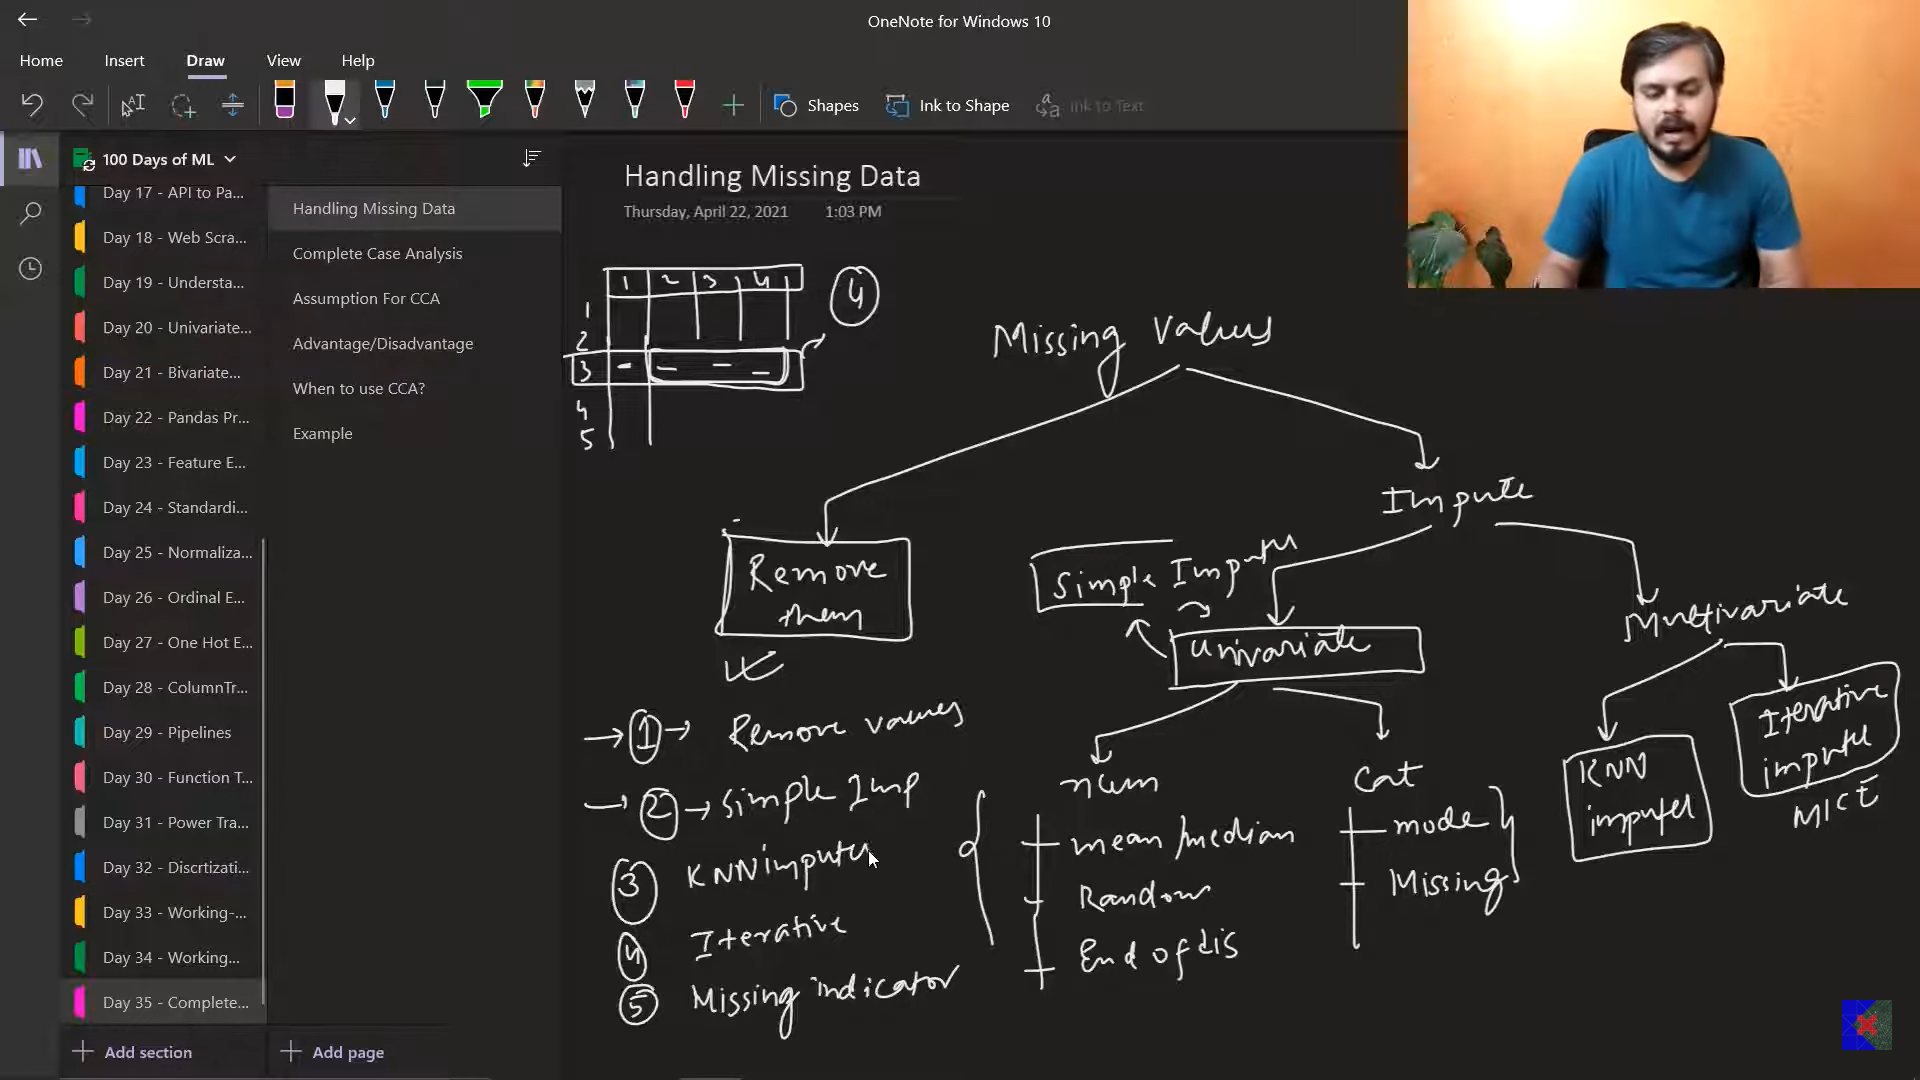 OneNote for Windows 10
Home
Insert
Draw
View
Help
Shapes
Ink to Shape
Ink to Text
100 Days of ML
Day 17 - API to Pa...
Day 18 - Web Scra...
Day 19 - Understa...
Day 20 - Univariate...
Day 21 - Bivariate...
Day 22 - Pandas Pr...
Day 23 - Feature E...
Day 24 - Standardi...
Day 25 - Normaliza...
Day 26 - Ordinal E...
Day 27 - One Hot E...
Day 28 - ColumnTr...
Day 29 - Pipelines
Day 30 - Function T...
Day 31 - Power Tra...
Day 32 - Discrtizati...
Day 33 - Working-...
Day 34 - Working...
Day 35 - Complete...
Add section
Handling Missing Data
Complete Case Analysis
Assumption For CCA
Advantage/Disadvantage
When to use CCA?
Example
Add page
Handling Missing Data
Thursday, April 22, 2021 1:03 PM
1 2 3 4
1
2
3
4
5
4
Missing Values
Remove
them
Impute
Simple Imputer
Univariate
Multivariate
num
mean/median
Random
End of dis
Cat
mode
Missing
KNN
imputer
Iterative
imputer
MICE
1 → Remove values
2 → Simple Imp
3 KNN imputer
4 Iterative
5 Missing indicator